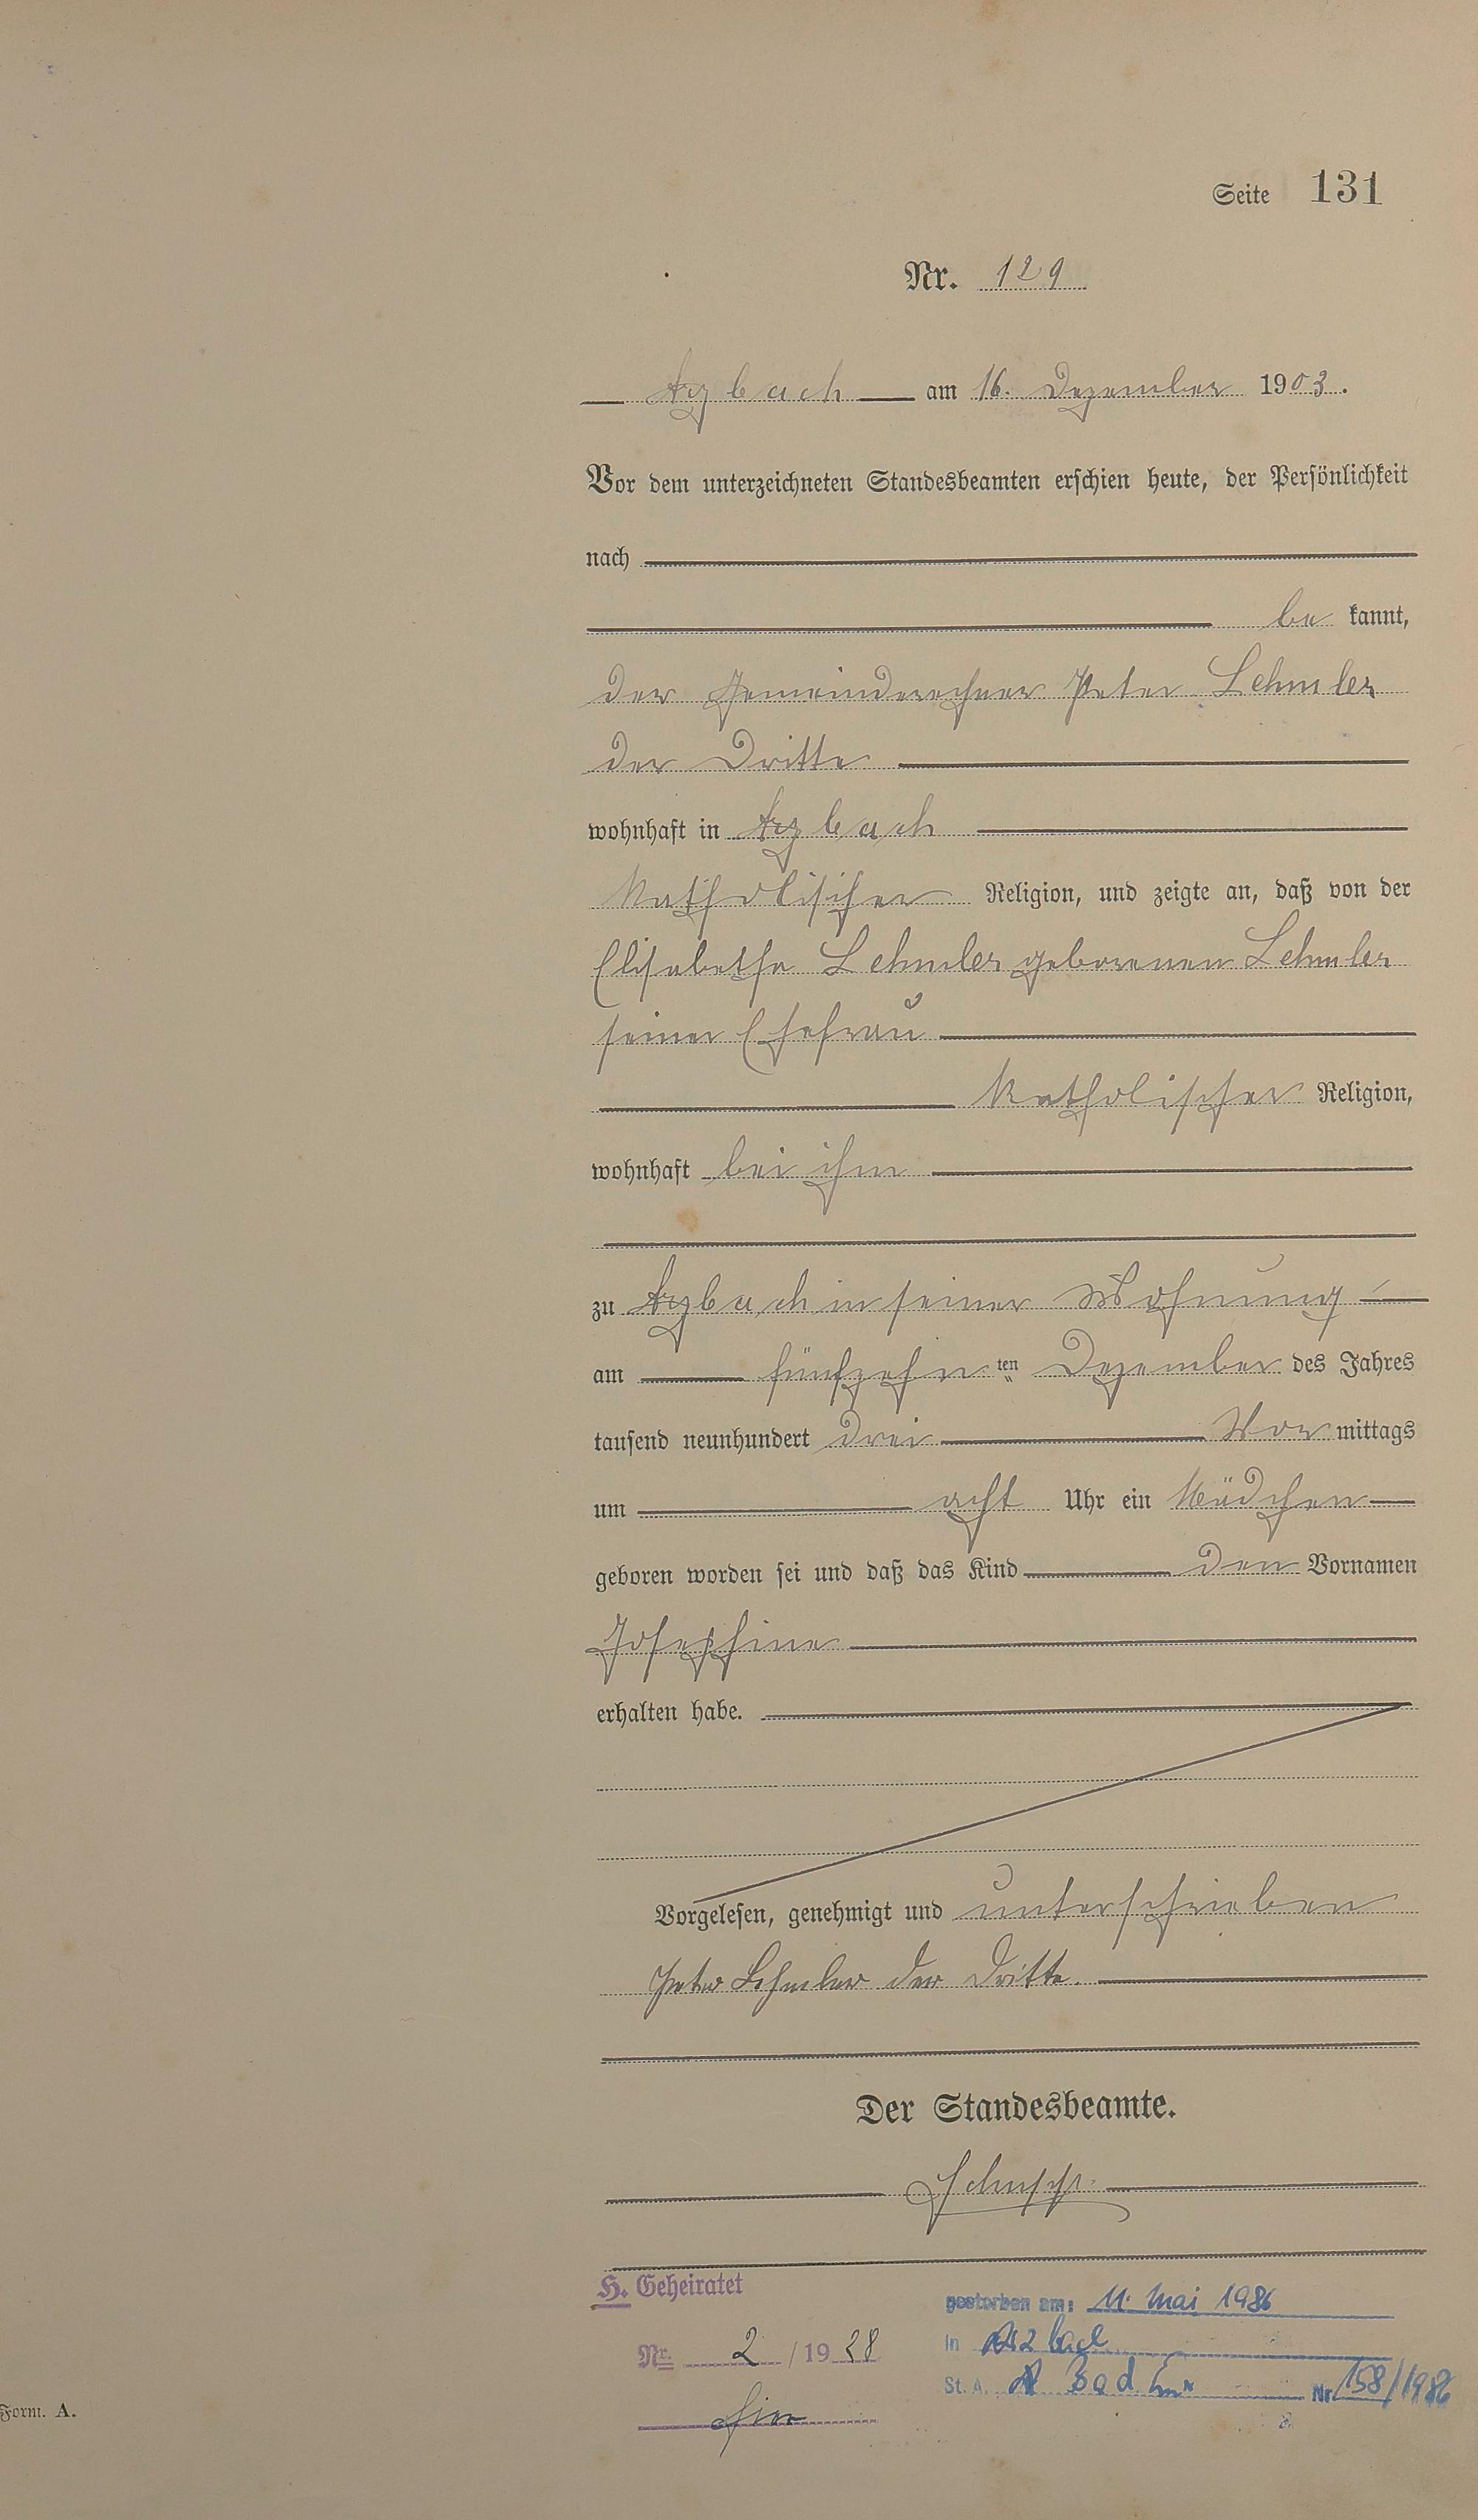 Seite 131
Nr. 129
Arzbach am 16. Dezember 1903.
Vor dem unterzeichneten Standesbeamten erschien heute, der Persönlichkeit
nach
be kannt,
der Gemeinderechner Peter Lehmler
der Dritte
wohnhaft in Arzbach
katholischer Religion, und zeigte an, daß von der
Elisabetha Lehmler geborenen Lehmler
seiner Ehefrau
katholischer Religion,
wohnhaft bei ihm
zu Arzbach in seiner Wohnung
am fünfzehn ten Dezember des Jahres
tausend neunhundert drei Vor mittags
um acht Uhr ein Mädchen
geboren worden sei und daß das Kind den Vornamen
Josephine
erhalten habe.
Vorgelesen, genehmigt und unterschrieben
Peter Lehmler der Dritte.
Der Standesbeamte.
Schupp
H. Geheiratet
Nr. 2 / 19 28
hier
gestorben am: 11. Mai 1986
in Arzbach
St. A. Bad Ems Nr. 158/1986
Form. A.